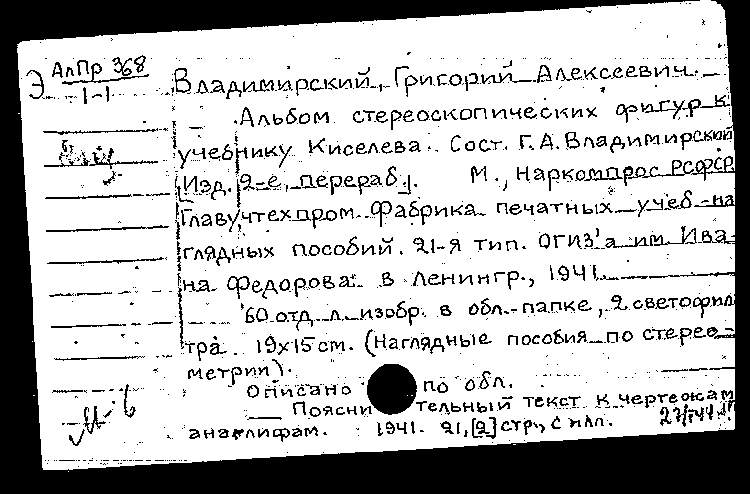 Э АлПр 368
1-1
Владимирский, Григорий Алексеевич.
Альбом стереоскопических фигур к
учебнику Киселева. Сост. Г.А. Владимирский
Изд. 2-е, перераб. М., Наркомпрос РСФСР
Главучтехпром Фабрика печатных учеб-на
глядных пособий. 21-я тип. ОГИЗ'а им. Ива-
на Федорова в Ленингр., 1941.
60 отд. л. изобр. в обл.-папке, 2 светофил
тра. 19х15 см. (Наглядные пособия по стерео-
метрии).
Описано по обл.
Поясни тельный текст к чертежам
анаглифам. 1941. 21, [2] стр., с илл.
М-6